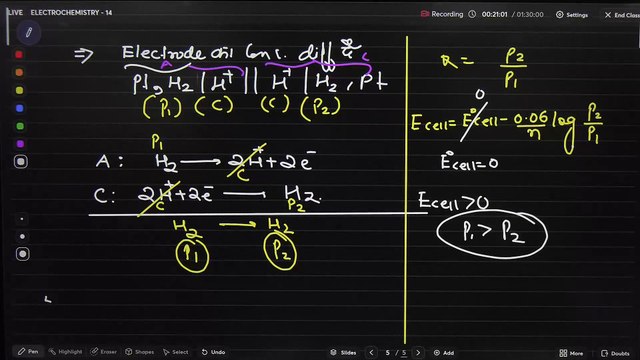 LIVE ELECTROCHEMISTRY - 14
Recording 00:21:01 / 01:30:00 Settings End Class
⇒ Electrode diff
A C
Pt, H₂ | H⁺ || H⁺ | H₂, Pt
(P₁) (C) (C) (P₂)
P₁
A: H₂ → 2H⁺ + 2e⁻
C
C: 2H⁺ + 2e⁻ → H₂
C P₂
H₂ → H₂
P₁ P₂
= P₂/P₁
0
Ecell = E°cell - 0.06/n log P₂/P₁
E°cell = 0
Ecell > 0
P₁ > P₂
Pen Highlight Eraser Shapes Select Undo Slides 5 / 5 Add Leaderboard Poll Chat